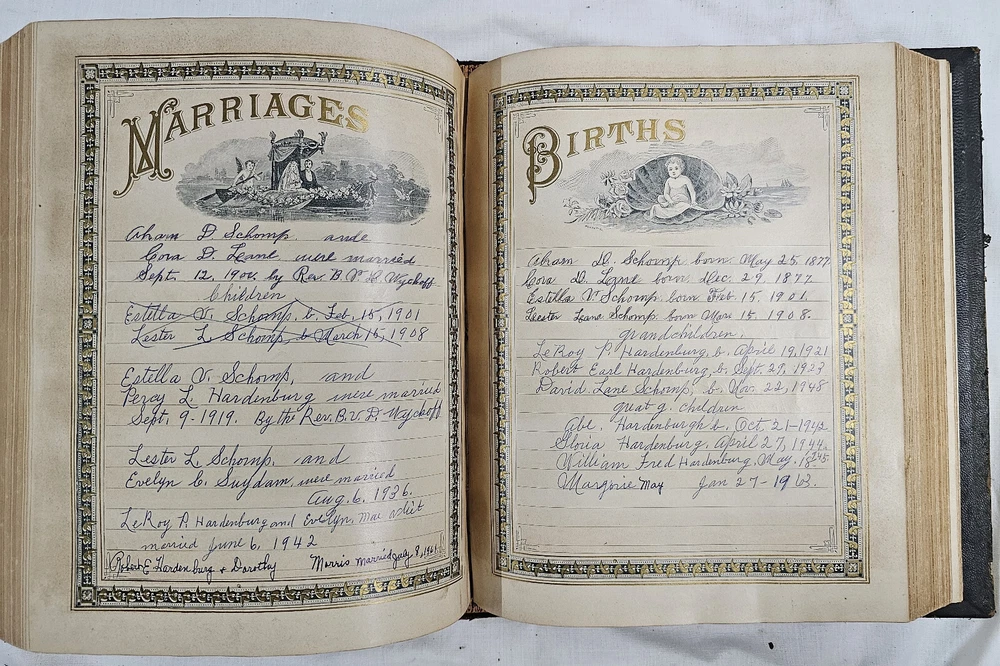 MARRIAGES
Abram D Schomp. ande
Cora D. Lane were married
Sept. 12, 1900. by Rev. B. V. D. Wyckoff
Children
Estella V. Schomp, b. Feb. 15, 1901
Lester L. Schomp b March 15, 1908
Estella V. Schomp, and
Percy L. Hardenburg were married
Sept. 9-1919. By the Rev. B. V. D. Wyckoff
Lester L. Schomp, and
Evelyn C. Suydam were married
Aug. 6. 1936.
LeRoy P. Hardenburg and Evelyn, Mae
married June 6, 1942
Robert E Hardenburg & Dorothy Morris married July, 8, 1961
BIRTHS
Abram D. Schomp born May 25, 1877.
Cora D. Lane born. Dec. 29. 1877.
Estella V Schomp. born Feb. 15. 1901.
Lester Lane Schomp. born Mar. 15. 1908.
grandchildren.
LeRoy P. Hardenburg, b. April 19, 1921
Robert Earl Hardenburg, b. Sept. 29, 1923
David Lane Schomp, b. Nov. 22, 1948
great g. children
Hardenburgh b. Oct. 21-1942
Gloria Hardenburg. April 27, 1944
William Fred Hardenburg. May. 18 1945
Marjorie May Jan 27-1963.